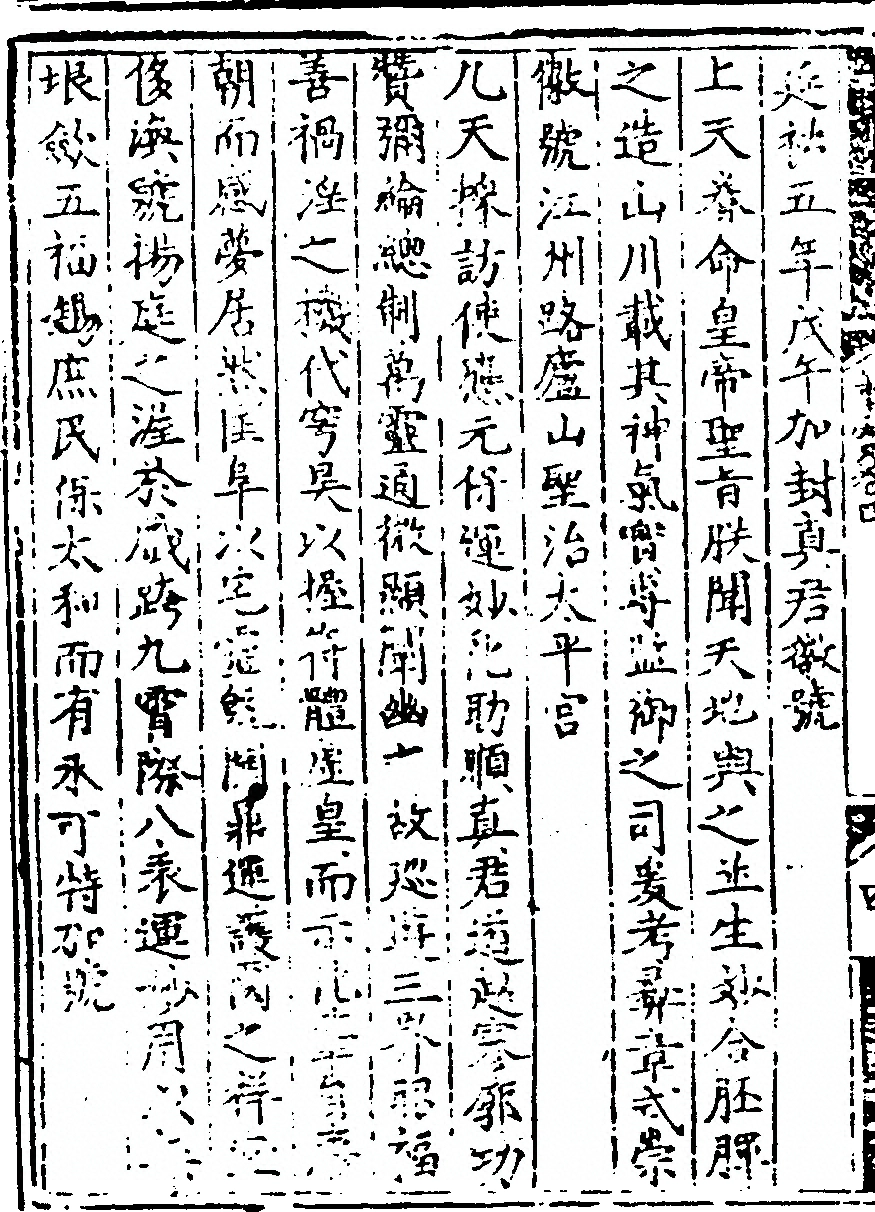 延祐五年戊午加封真君徽號
上天眷命皇帝聖旨朕聞天地與之並生妙合胚腪
之造山川載其神氣實専监御之司爰考彛章式崇
徽號江州路廬山聖治太平宫
九天採訪使應元保運妙化助順真君道超寥廓功
賛彌綸總制萬靈通微顯闡幽 故巡 三界昭福
善禍淫之機代穹昊以握符體虚皇而示化
朝而感夢居然匡阜以宅靈 開 運護 之祥
俊渙號揚庭之渥於戲跨九霄際八表運妙用
垠斂五福錫庶民保太和而有永可特加號